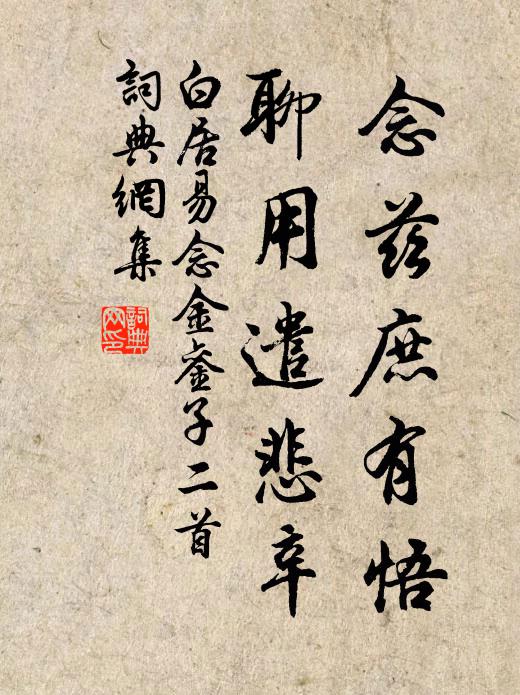 念茲庶有悟
聊用遣悲辛
白居易念金鑾子二首
詞典網集
詞典
网印